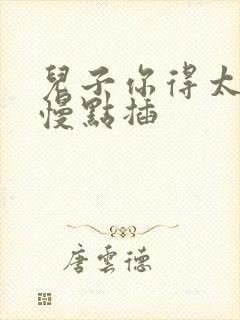 兒子你得太
慢點插
唐雲德